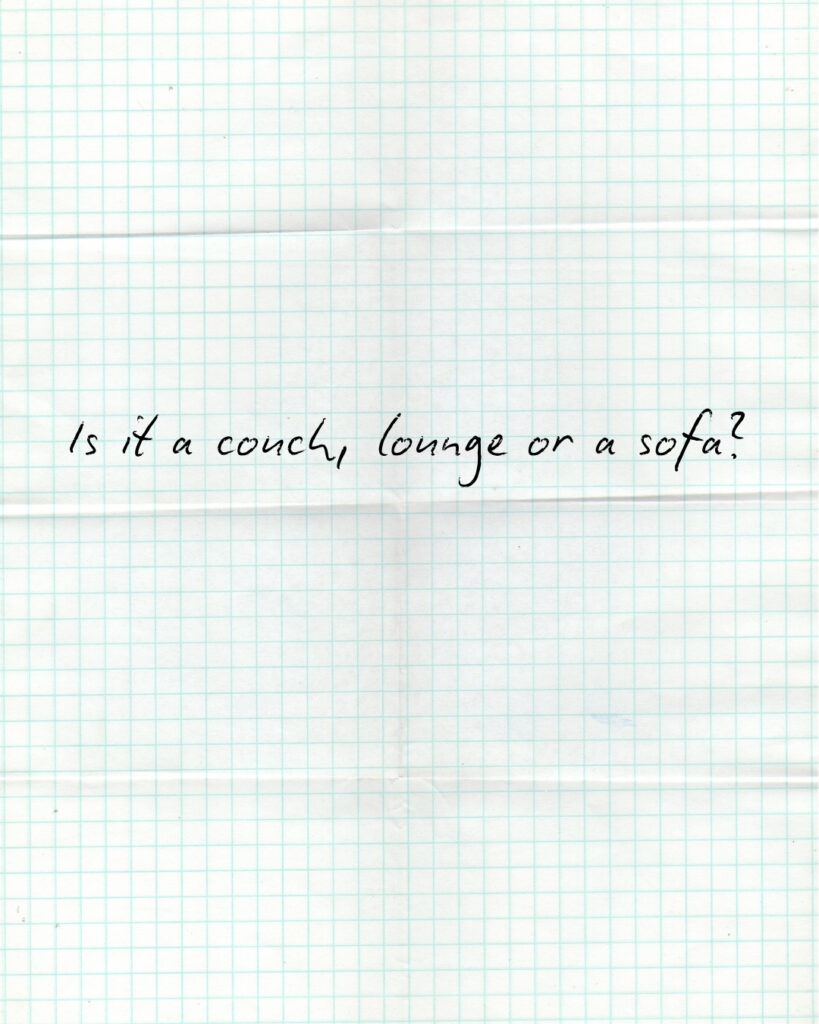 Is it a couch, lounge or a sofa?